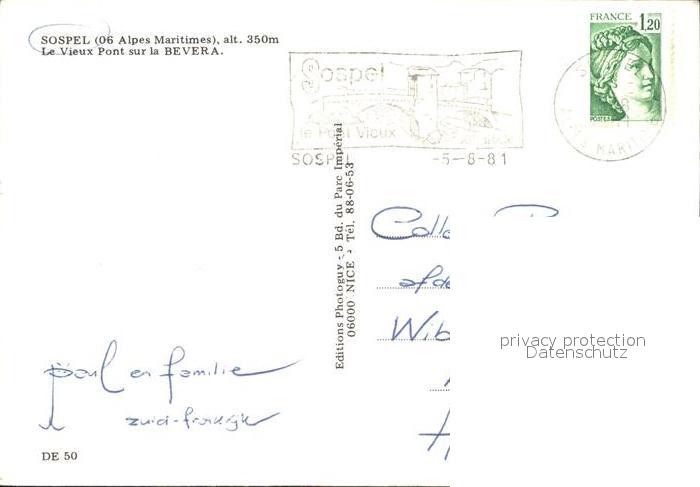 SOSPEL (06 Alpes Maritimes), alt. 350m
Le Vieux Pont sur la BEVERA.
FRANCE 1,20
POSTES
Sospel
le Pont Vieux
SOSPEL -5-8-81
Editions Photoguy - 5 Bd. du Parc Impérial
06000 NICE - Tél. 88-06-53
Colle
afde
Wib
privacy protection
Datenschutz
H
paul en familie
zuid-frankrijk
DE 50